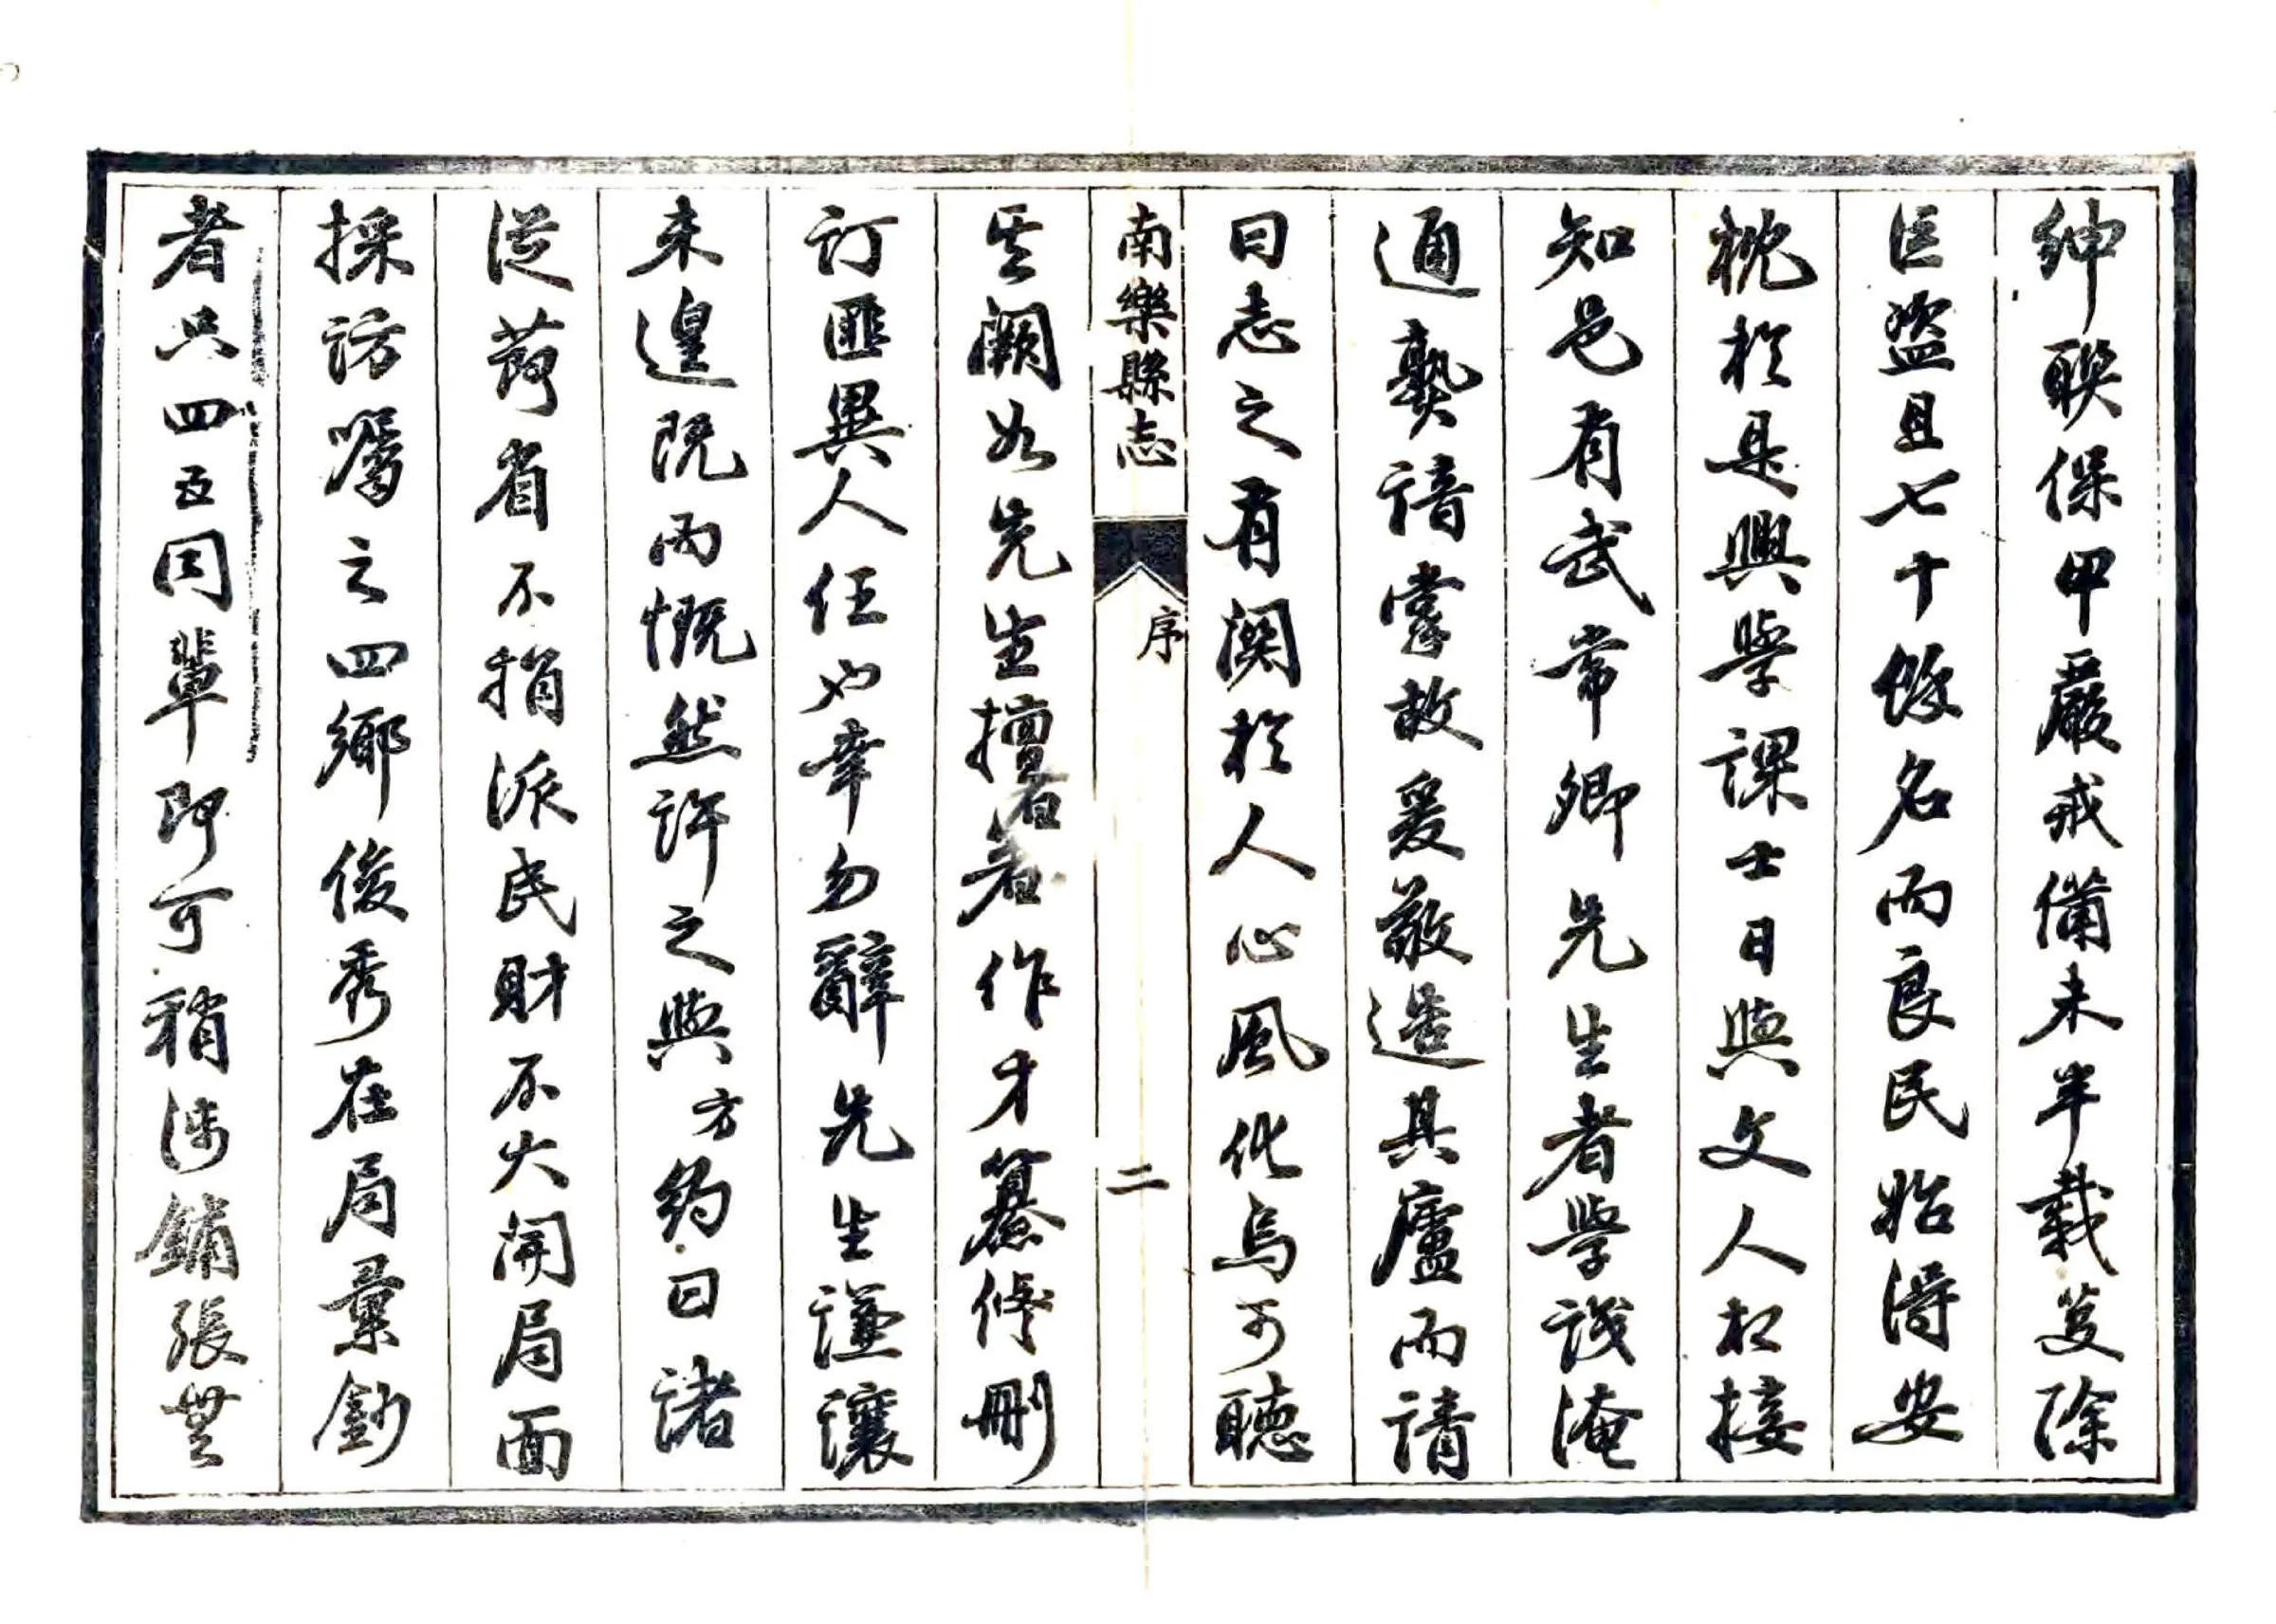 紳聯保甲嚴戒備未半載芟除
巨盜且七十餘名而良民始得安
枕於是興學課士日與文人相接
知邑有武常卿先生者學識淹
通爇諳掌故爰敬造其廬而請
曰志之有關於人心風化烏可聽
南樂縣志
序
二
其闕如先生擅著作才纂修刪
訂匪異人任也幸勿辭先生謹讓
未遑既而慨然許之與方約曰諸
從節省不捐派民財不大開局面
採訪囑之四鄉俊秀在局彙鈔
者只四五同輩即可稍涉鋪張無